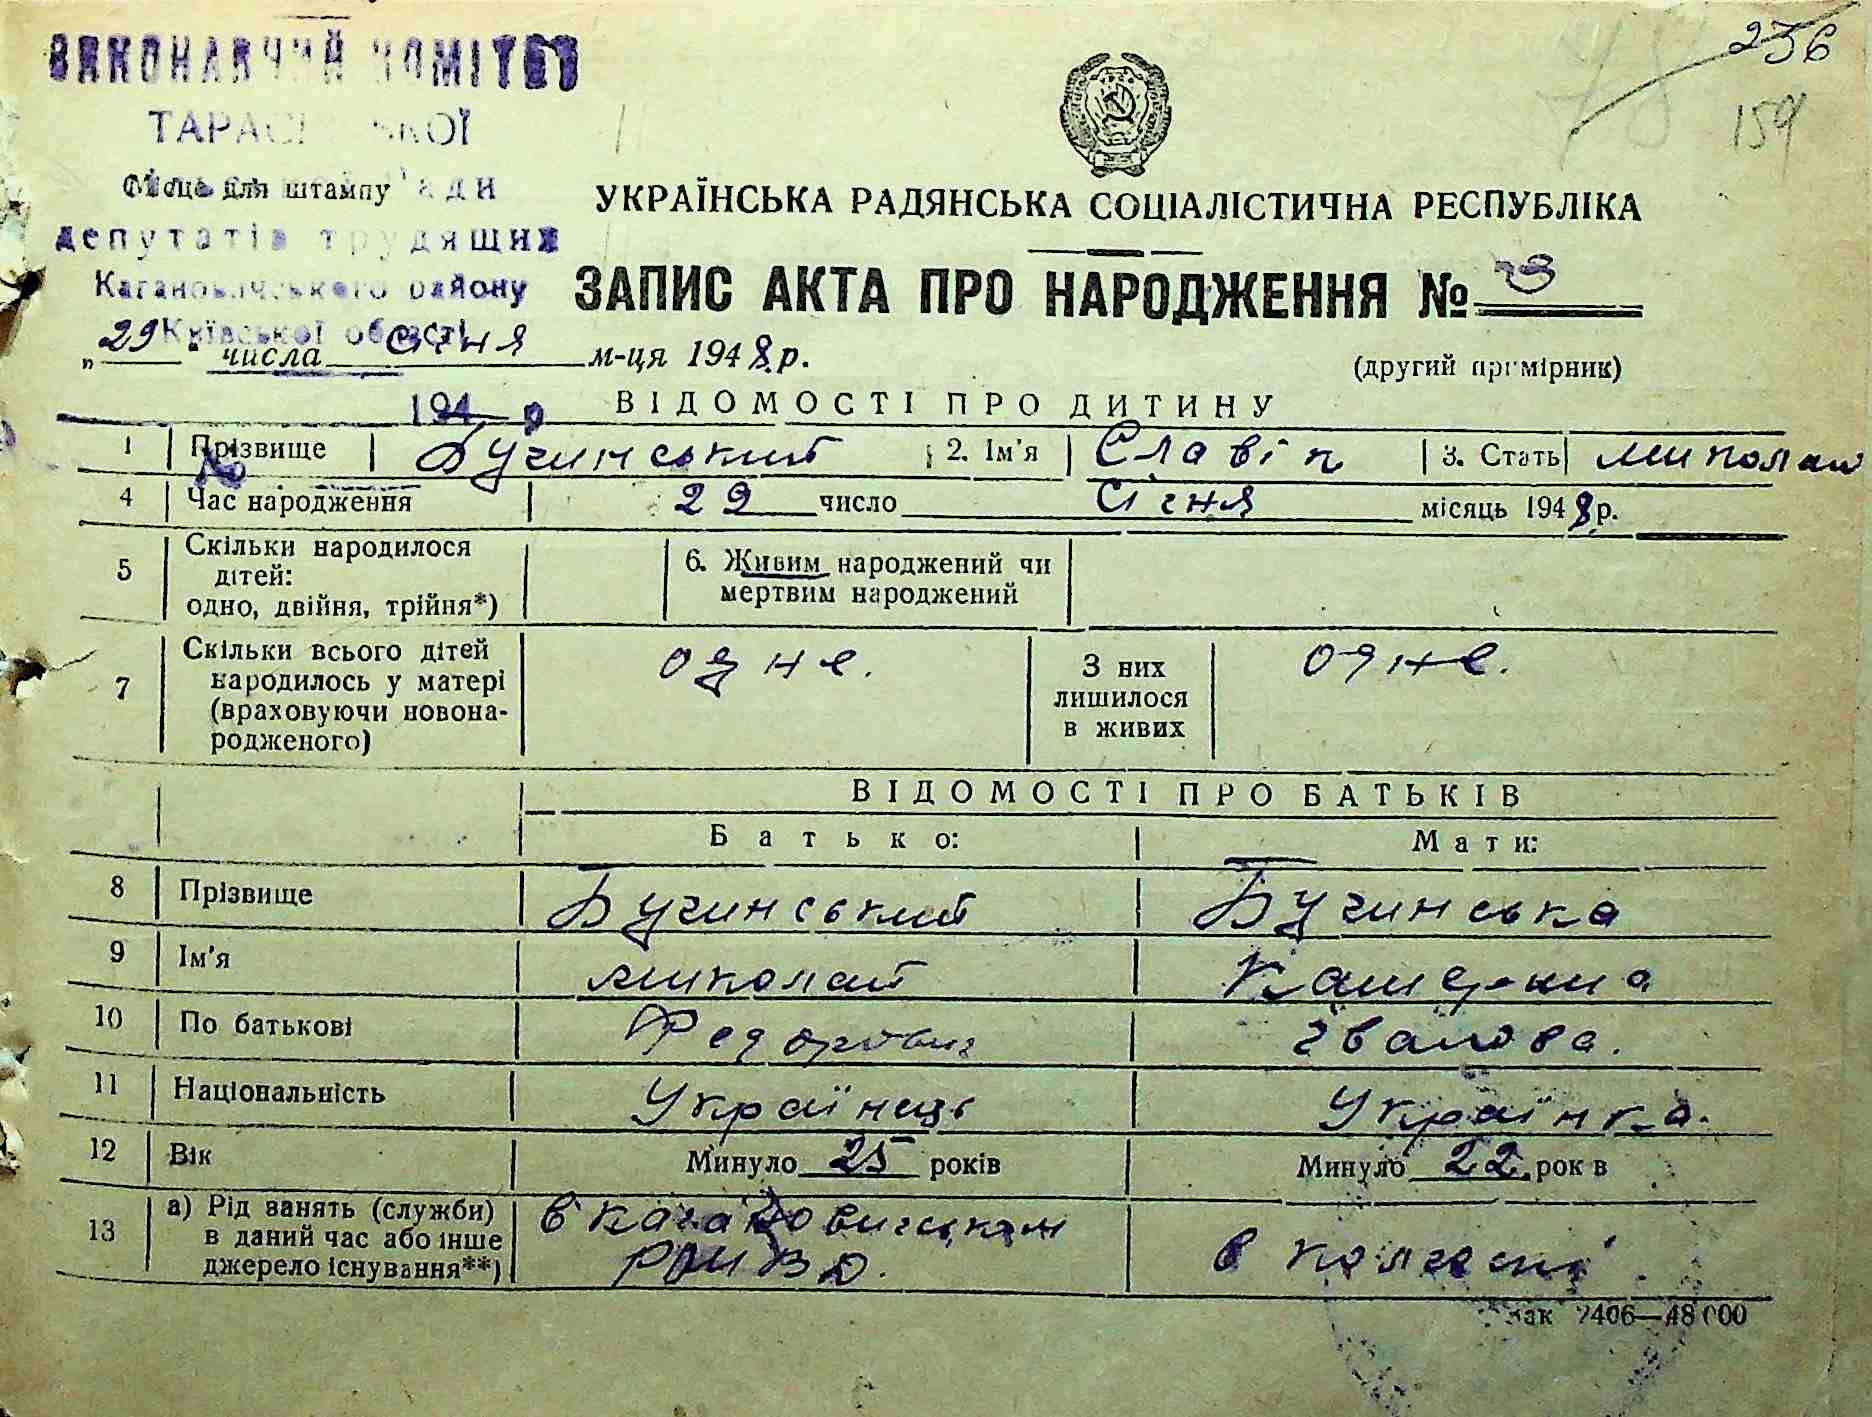 236
159
ВИКОНАВЧИЙ КОМІТЕТ
Місце для штампу
депутатів трудящих
Кагановичського району
Київської області
УКРАЇНСЬКА РАДЯНСЬКА СОЦІАЛІСТИЧНА РЕСПУБЛІКА
ЗАПИС АКТА ПРО НАРОДЖЕННЯ № 3
„29" числа січня м-ця 1948 р.
(другий примірник)
194 р
ВІДОМОСТІ ПРО ДИТИНУ
1 Прізвище Бучинський 2. Ім'я Славік 3. Стать
№
4 Час народження 29 число січня місяць 1948 р.
5 Скільки народилося дітей: одно, двійня, трійня*) 6. Живим народжений чи мертвим народжений
7 Скільки всього дітей народилось у матері (враховуючи новонародженого) одне. З них лишилося в живих одне.
ВІДОМОСТІ ПРО БАТЬКІВ
Батько: Мати:
8 Прізвище Бучинський Бучинська
9 Ім'я Миколай Катерина
10 По батькові Федорович Івановa.
11 Національність Українець Українка.
12 Вік Минуло 25 років Минуло 22 років
13 а) Рід занять (служби) в даний час або інше джерело існування**) в Кагановичськом РОМВД. в колгоспі
Зак 2406—48000